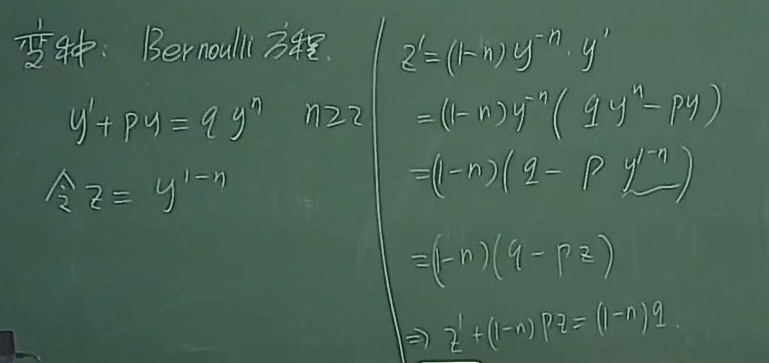 变种: Bernoulli 方程.
y' + py = q yⁿ  n≥2
令 z = y¹⁻ⁿ
z' = (1-n) y⁻ⁿ · y'
= (1-n) y⁻ⁿ ( q yⁿ - py )
= (1-n) ( q - p y¹⁻ⁿ )
= (1-n) ( q - pz )
⇒ z' + (1-n) pz = (1-n) q.